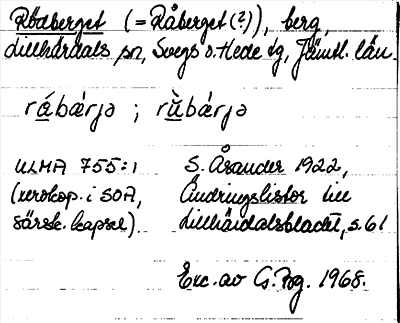 Rödberget (= Råberget (?)), berg,
Lillhärdals sn, Svegs o. Hede tg, Jämtl. län.
rábærjə ; rùbærjə
ULMA 755:1 S. Åsander 1922,
(xerokop. i SOA, Ändringslistor till
särsk. kapsel) Lillhärdalsbladet, s. 61
Exc. av G. Bg. 1968.